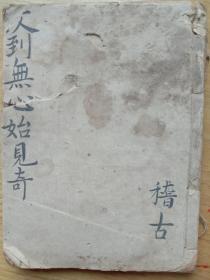 文到無心始見奇
稽古